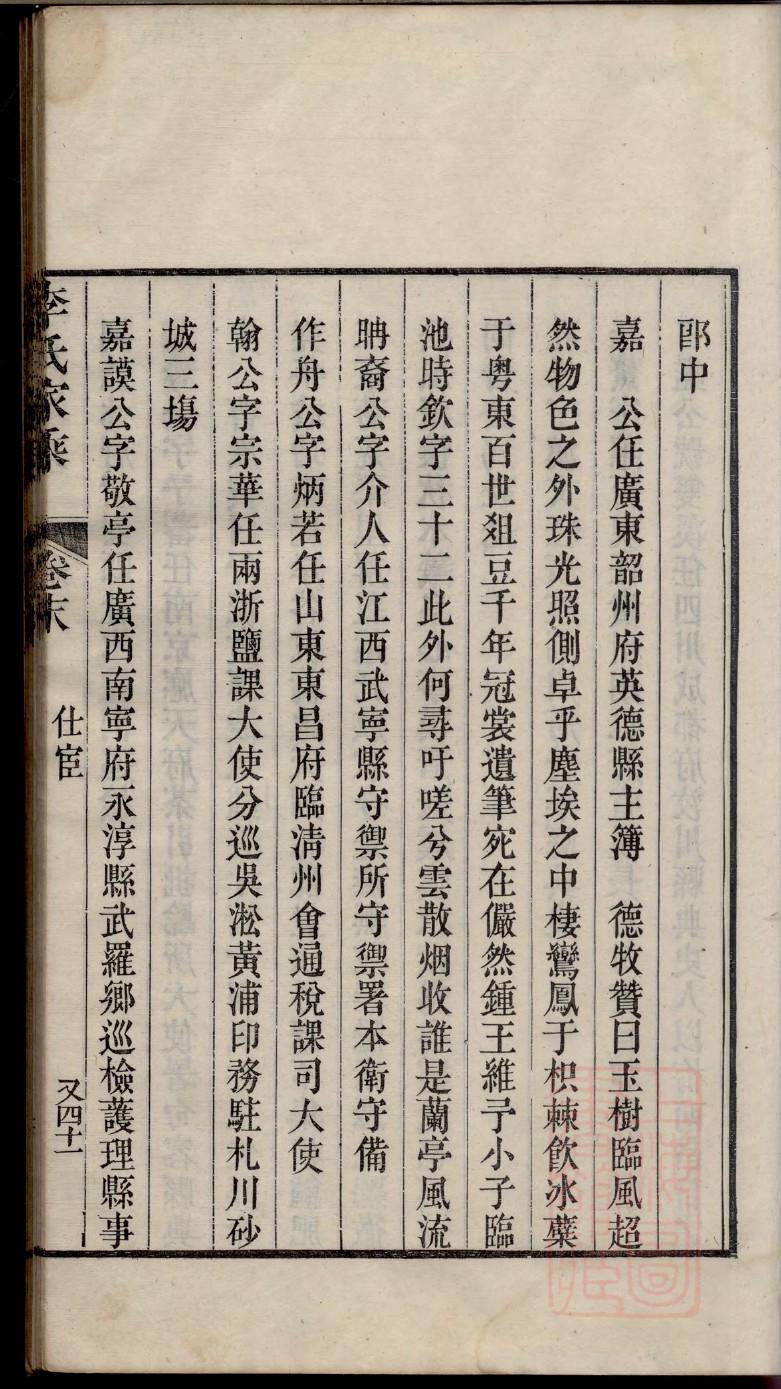 郎中
嘉　公任廣東韶州府英德縣主簿　德牧贊曰玉樹臨風超
然物色之外珠光照側卓乎塵埃之中棲鸞鳳于枳棘飲冰蘗
于粵東百世俎豆千年冠裳遺筆宛在儼然鍾王維予小子臨
池時欽字三十二此外何尋吁嗟兮雲散烟收誰是蘭亭風流
聃裔公字介人任江西武寧縣守禦所守禦署本衛守備
作舟公字炳若任山東東昌府臨清州會通稅課司大使
翰公字宗華任兩浙鹽課大使分巡吳淞黃浦印務駐札川砂
城三場
嘉謨公字敬亭任廣西南寧府永淳縣武羅鄉巡檢護理縣事
李氏家乘
卷末
仕宦
又四十一